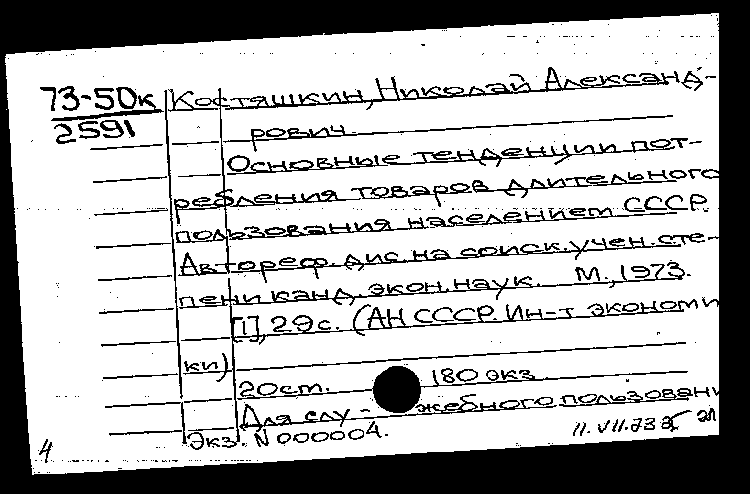 73-50к Костяшкин, Николай Александ-
2591
рович.
Основные тенденции пот-
ребления товаров длительного
пользования населением СССР.
Автореф. дис. на соиск. учен. сте-
пени канд. экон. наук. М., 1973.
[1], 29 с. (АН СССР. Ин-т экономи
ки)
20см. 180 экз
Для слу- жебного пользовани
Экз. N 000004.
4 11.VII.73